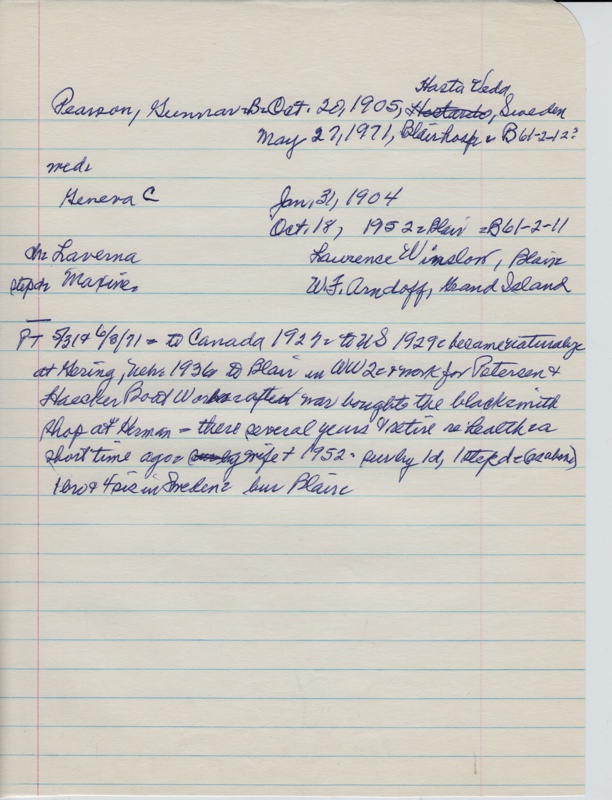 Hasta Veda
Pearson, Gunnar = B = Oct. 20, 1905, Sweden
May 27, 1971, Blair hosp = B61-2-12?
med:
Geneva C Jan, 31, 1904
Oct. 18, 1952 = Blair = B61-2-11
ch: Laverna Lawrence Winslow, Blair
stepch Maxine = W. F. Arndoff, Grand Island
PT 5/31 & 6/3/71 = to Canada 1927 = to US 1929 = became naturalize
at Gering, Neb = 1936 to Blair in WW2 = & work for Petersen &
Haecker Boat Works = after war bought the blacksmith
shop at Herman = there several years & retire re health = a
short time ago = wife + 1952 = surv by 1d, 1 stepd = (as above)
1 bro & 4 sis in Sweden = bur Blair